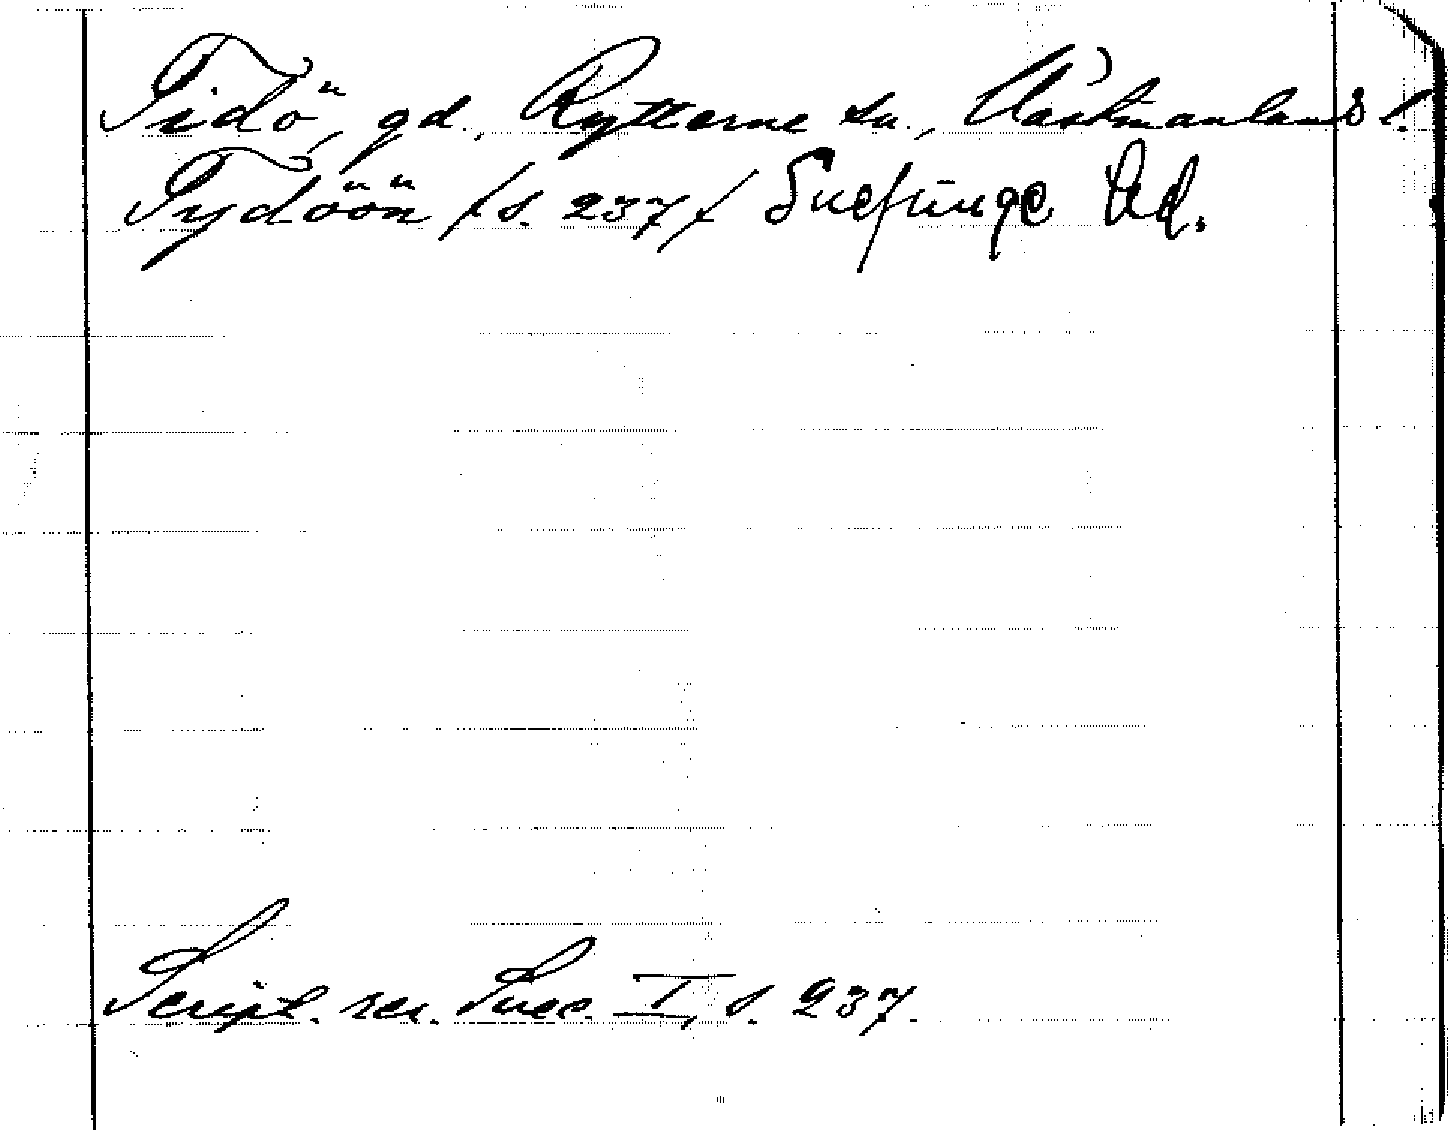 Tidö, gd., Rytterne sn., Västmanlands l.
Tydöön (s. 237) Snefringe hd.
Script. rer. Suec. I, s. 237.